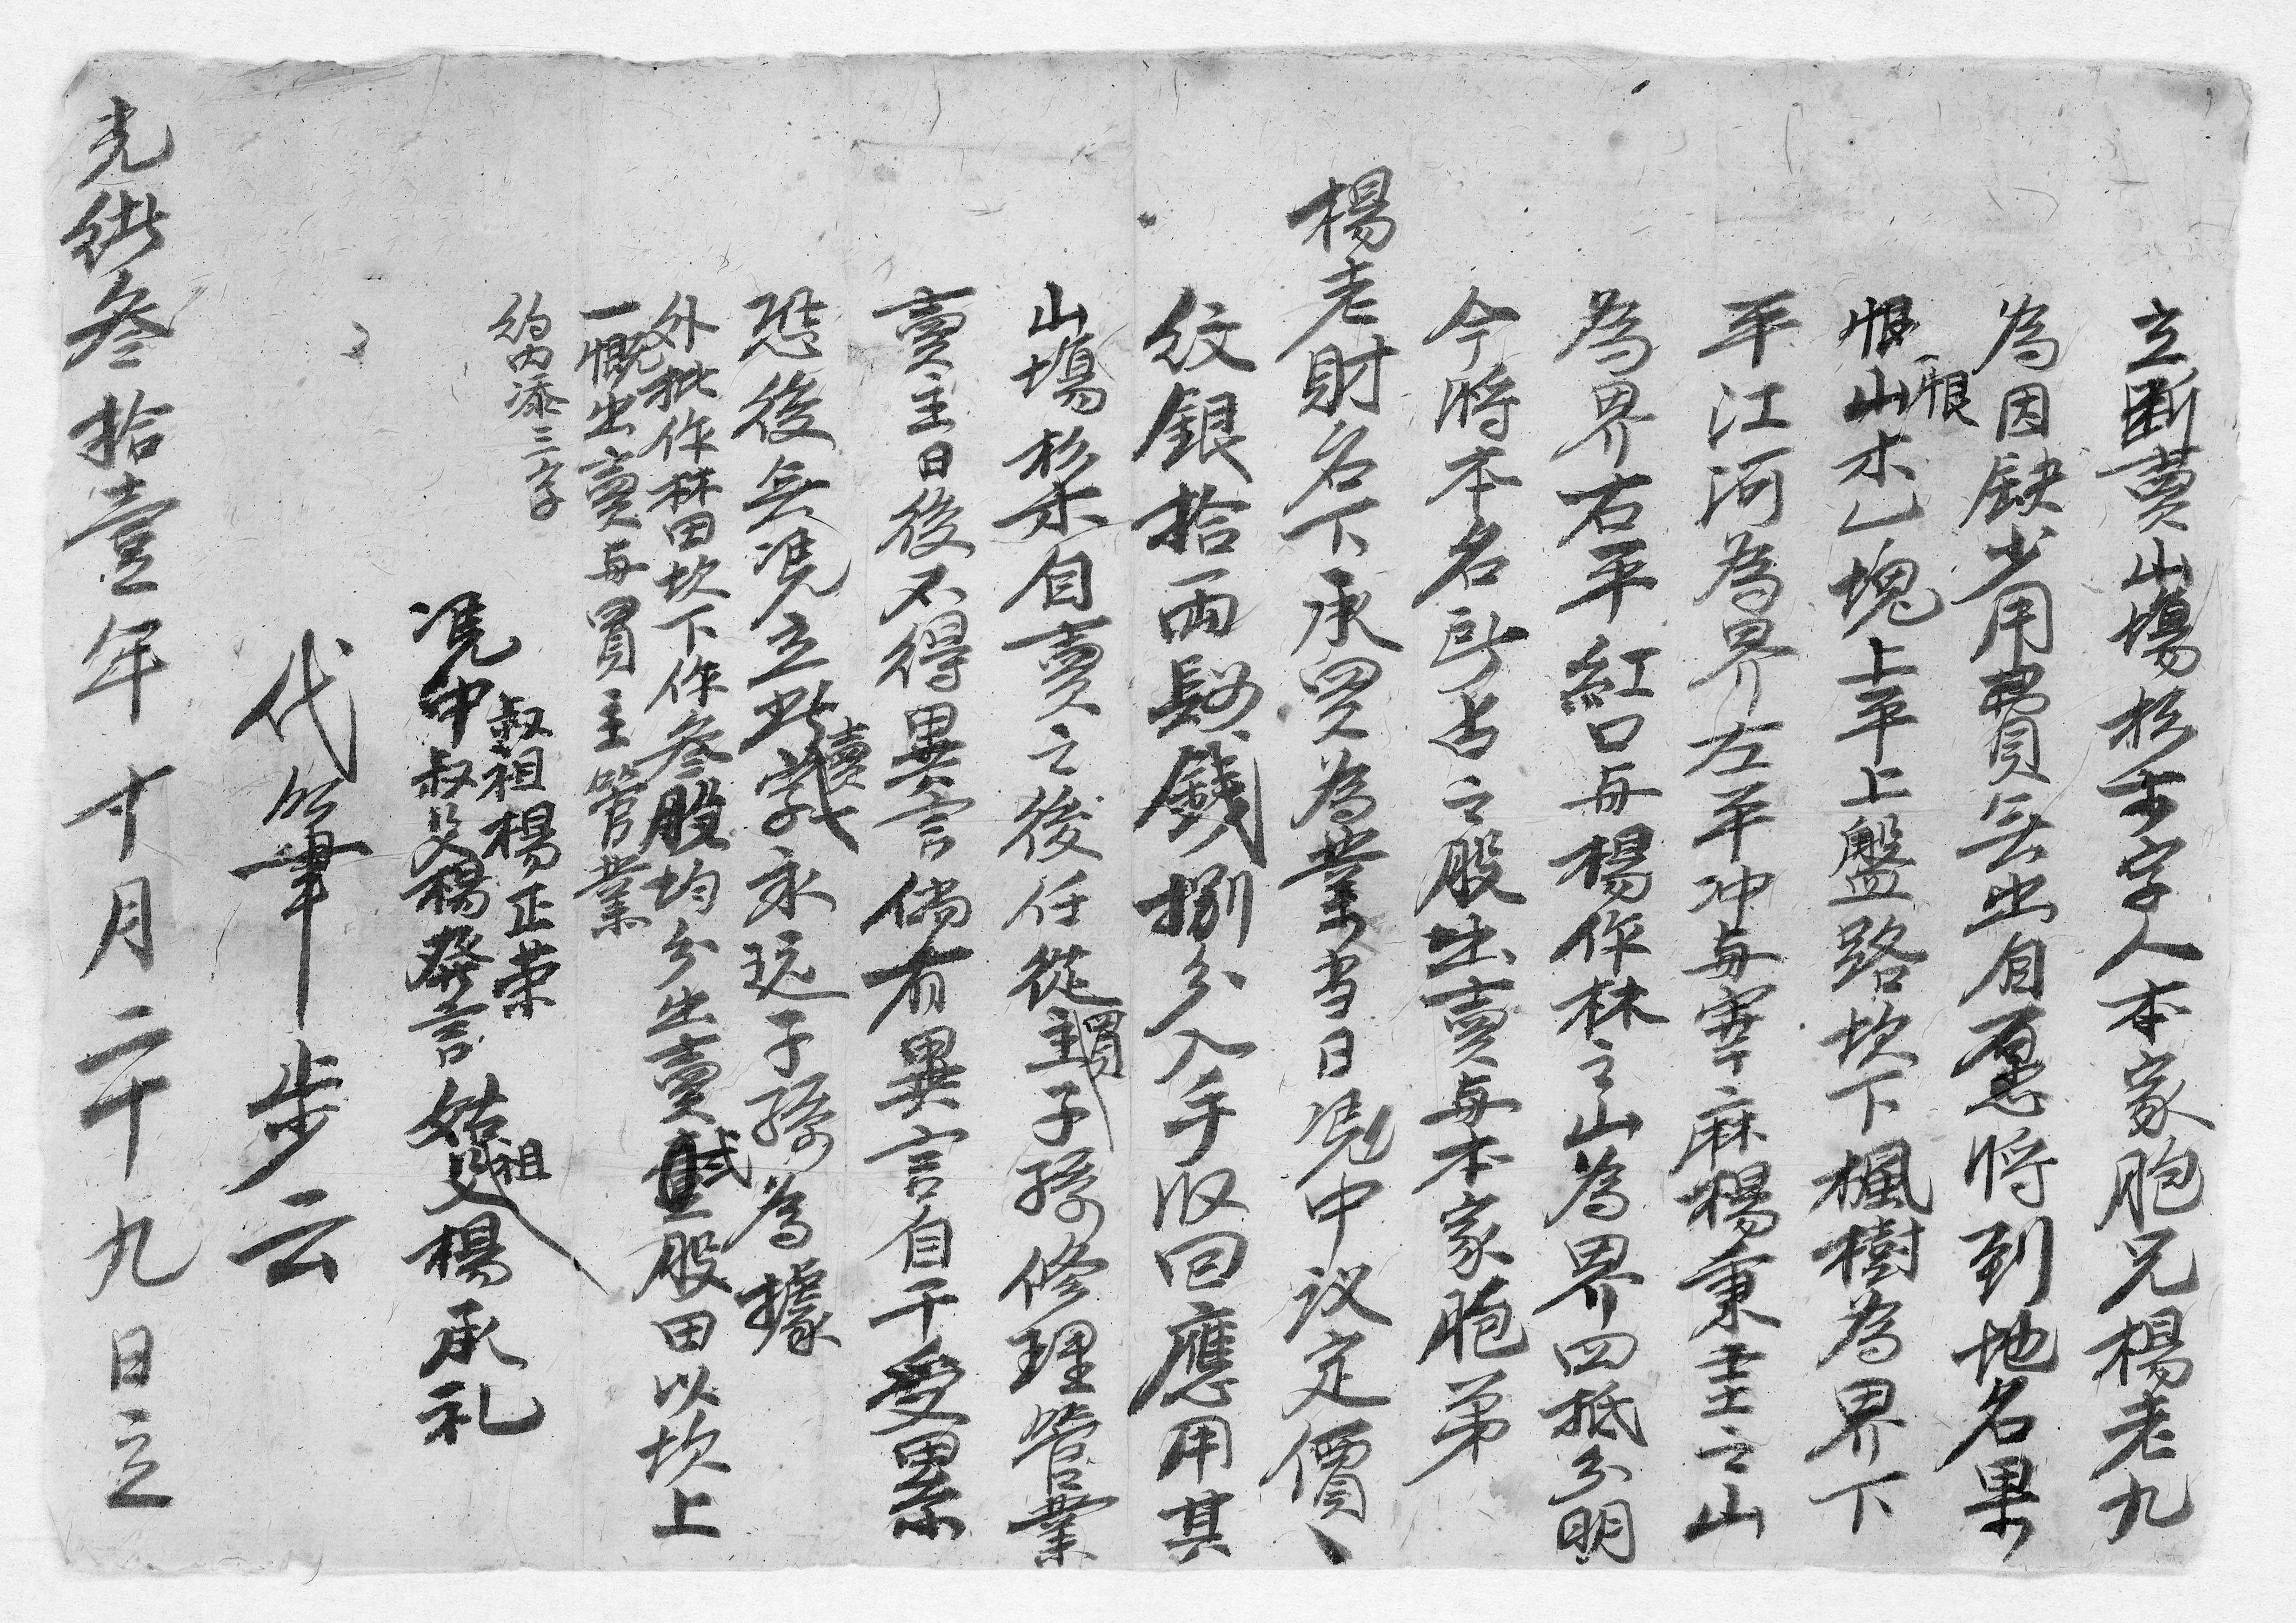 立斷賣山塲杉木字人本家胞兄楊老九
為因缺少用費無出自愿將到地名果
恨一恨山木乙塊上平上盤路坎下楓樹為界下
平江河為界左平冲与寨麻楊秉圭之山
為界右平紅口与楊作林之山為界四抵分明
今將本名所占之股出賣与本家胞弟
楊老財名下承買為業当日凴中议定價
紋銀拾両錢捌分入手收回應用其
山塲杉木自賣之後任從買主子孫修理管業
賣主日後不得異言倘有異言自干受累
恐後無凴立此賣字永远子孫為據
外批作林田坎下作叁股均分出賣貳股田以坎上
一慨出賣与買主管業
約内添三字
叔祖楊正荣
凴中叔父楊發言 姑祖楊承礼
代筆步云
光緒叁拾壹年十月二十九日立